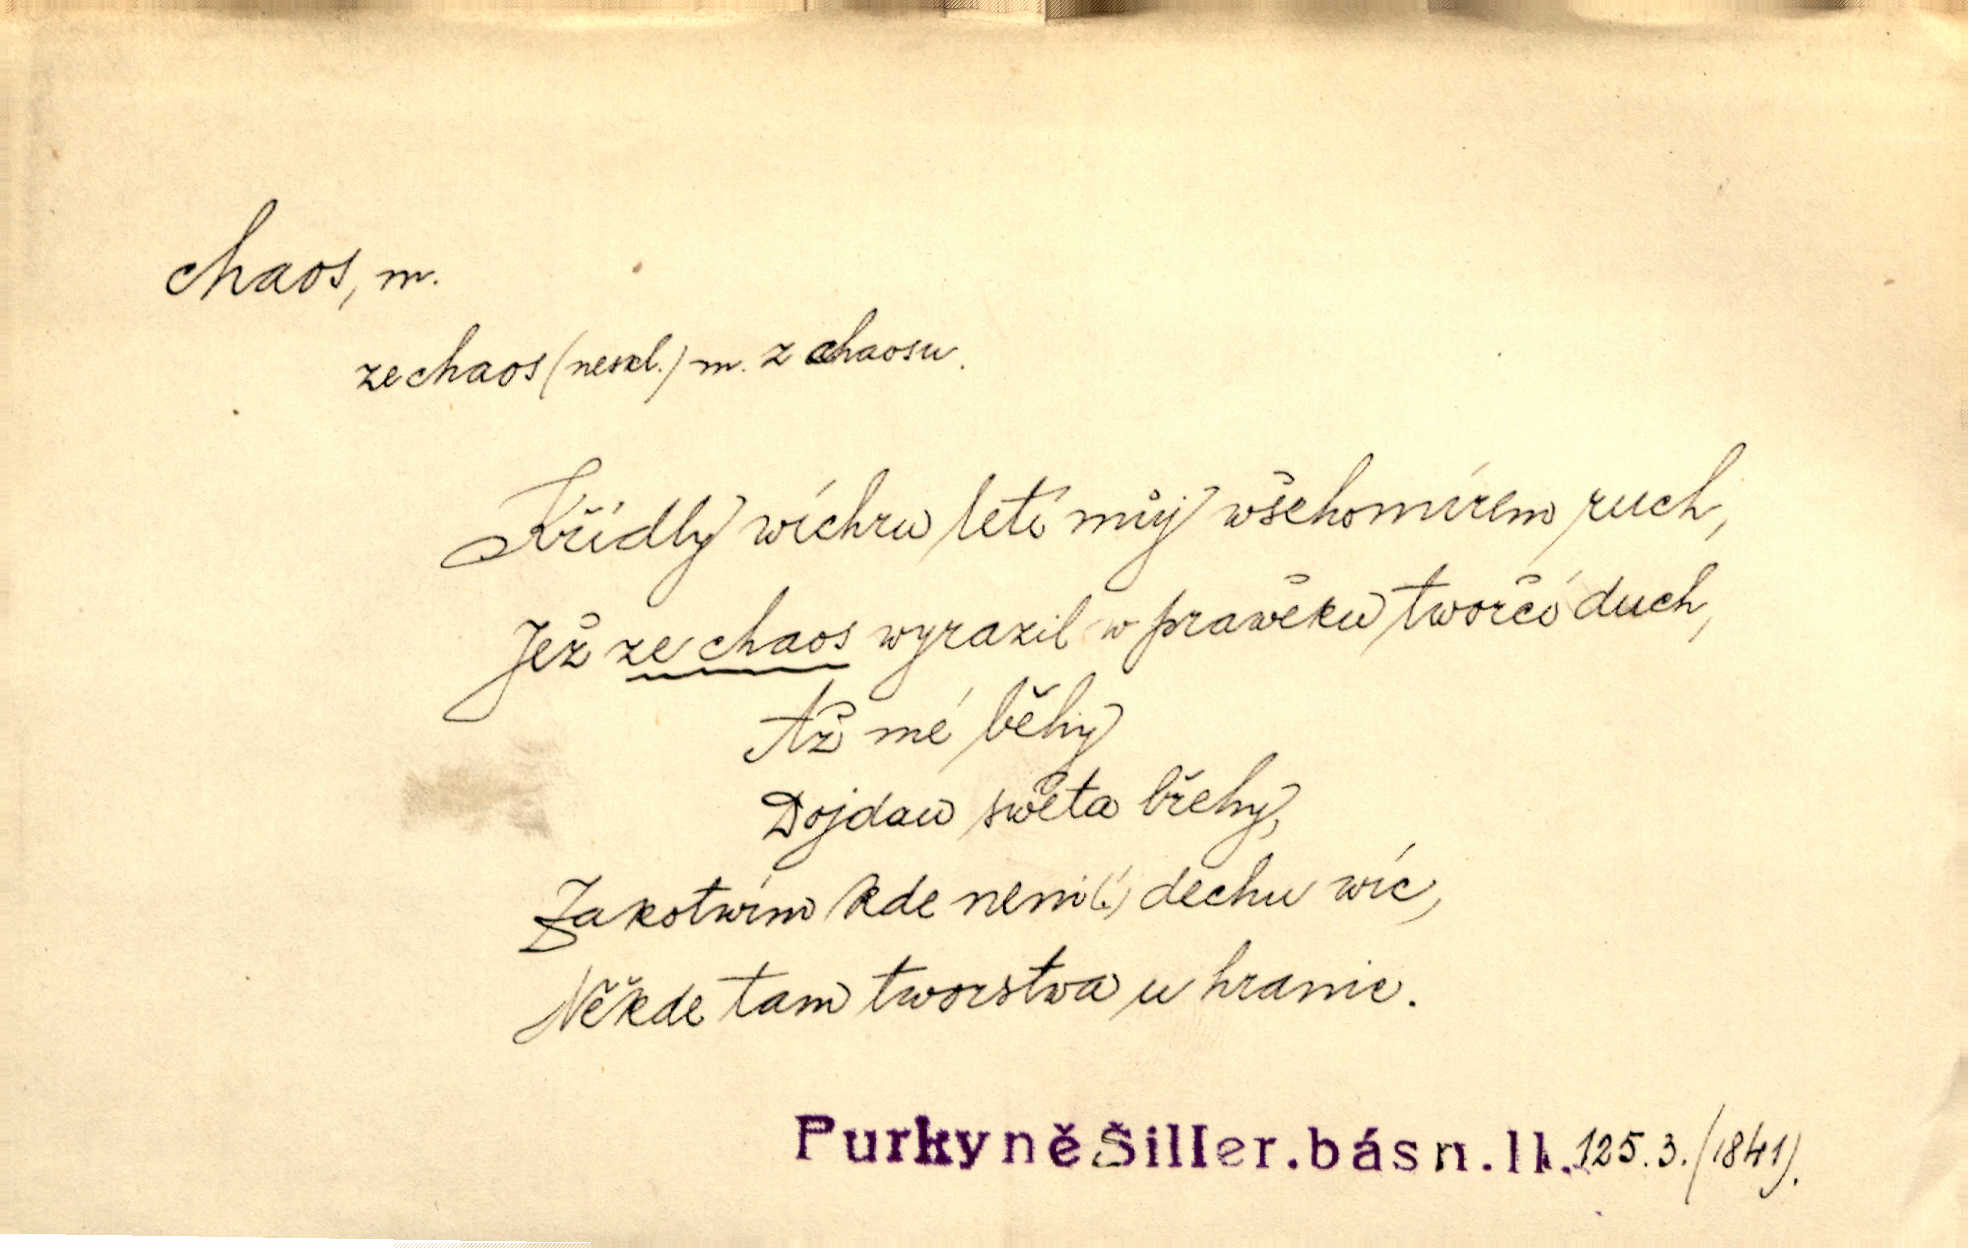 chaos, m.
ze chaos (neskl.) m. z chaosu.
Křídly wíchru letí můj wšehomírem ruch,
Jež ze chaos wyrazil w prawěku tworčí duch,
Až mé běhy
Dojdau swěta břehy,
Zakotwím kde neni(!) dechu wíc,
Někde tam tworstwa u hranic.
Purkyně Šiller. básn. II. 125.3. (1841).